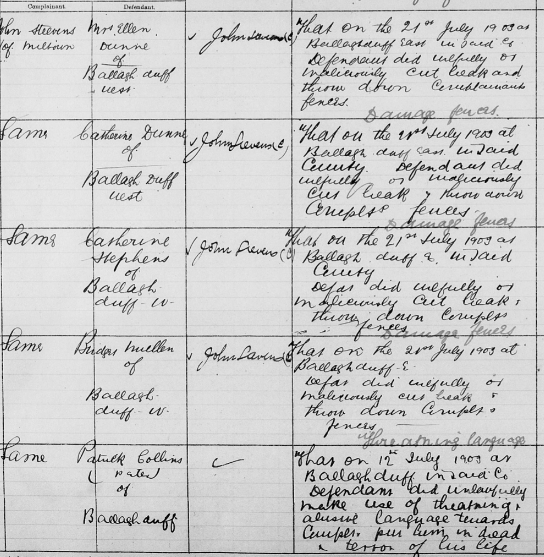 Complainant. Defendant.
John Stevens Mrs Ellen ✓ John Stevens (C) "That on the 21st July 1903 at
of Miltown Dunne Ballaghduff East in said Co
of Defendant did wilfully or
Ballagh duff maliciously cut break and
west throw down Complainants
fences.
Damage fences.
Same Catherine Dunne ✓ John Stevens (C) "That on the 21st July 1903 at
of Ballagh duff East in said
Ballagh Duff County Defendant did
west wilfully or maliciously
cut break & throw down
Complts fences
Damage fences
Same Catherine ✓ John Stevens (C) "That on the 21st July 1903 at
Stephens Ballagh duff E in said
of County
Ballagh Defdt did wilfully or
duff-W- maliciously cut break &
throw down Complts
fences
Damage fences
Same Mullen ✓ John Stevens (C) "That on the 21st July 1903 at
of Ballaghduff-E-
Ballagh Defdt did wilfully or
duff-W- maliciously cut break &
throw down Complts
fences
Threatning language
Same Patrick Collins ✓ "That on 12th July 1903 at
(Pater) Ballaghduff in said Co
of Defendant did unlawfully
Ballaghduff make use of threatning &
abusive language towards
Complt put him in dread
& terror of his life